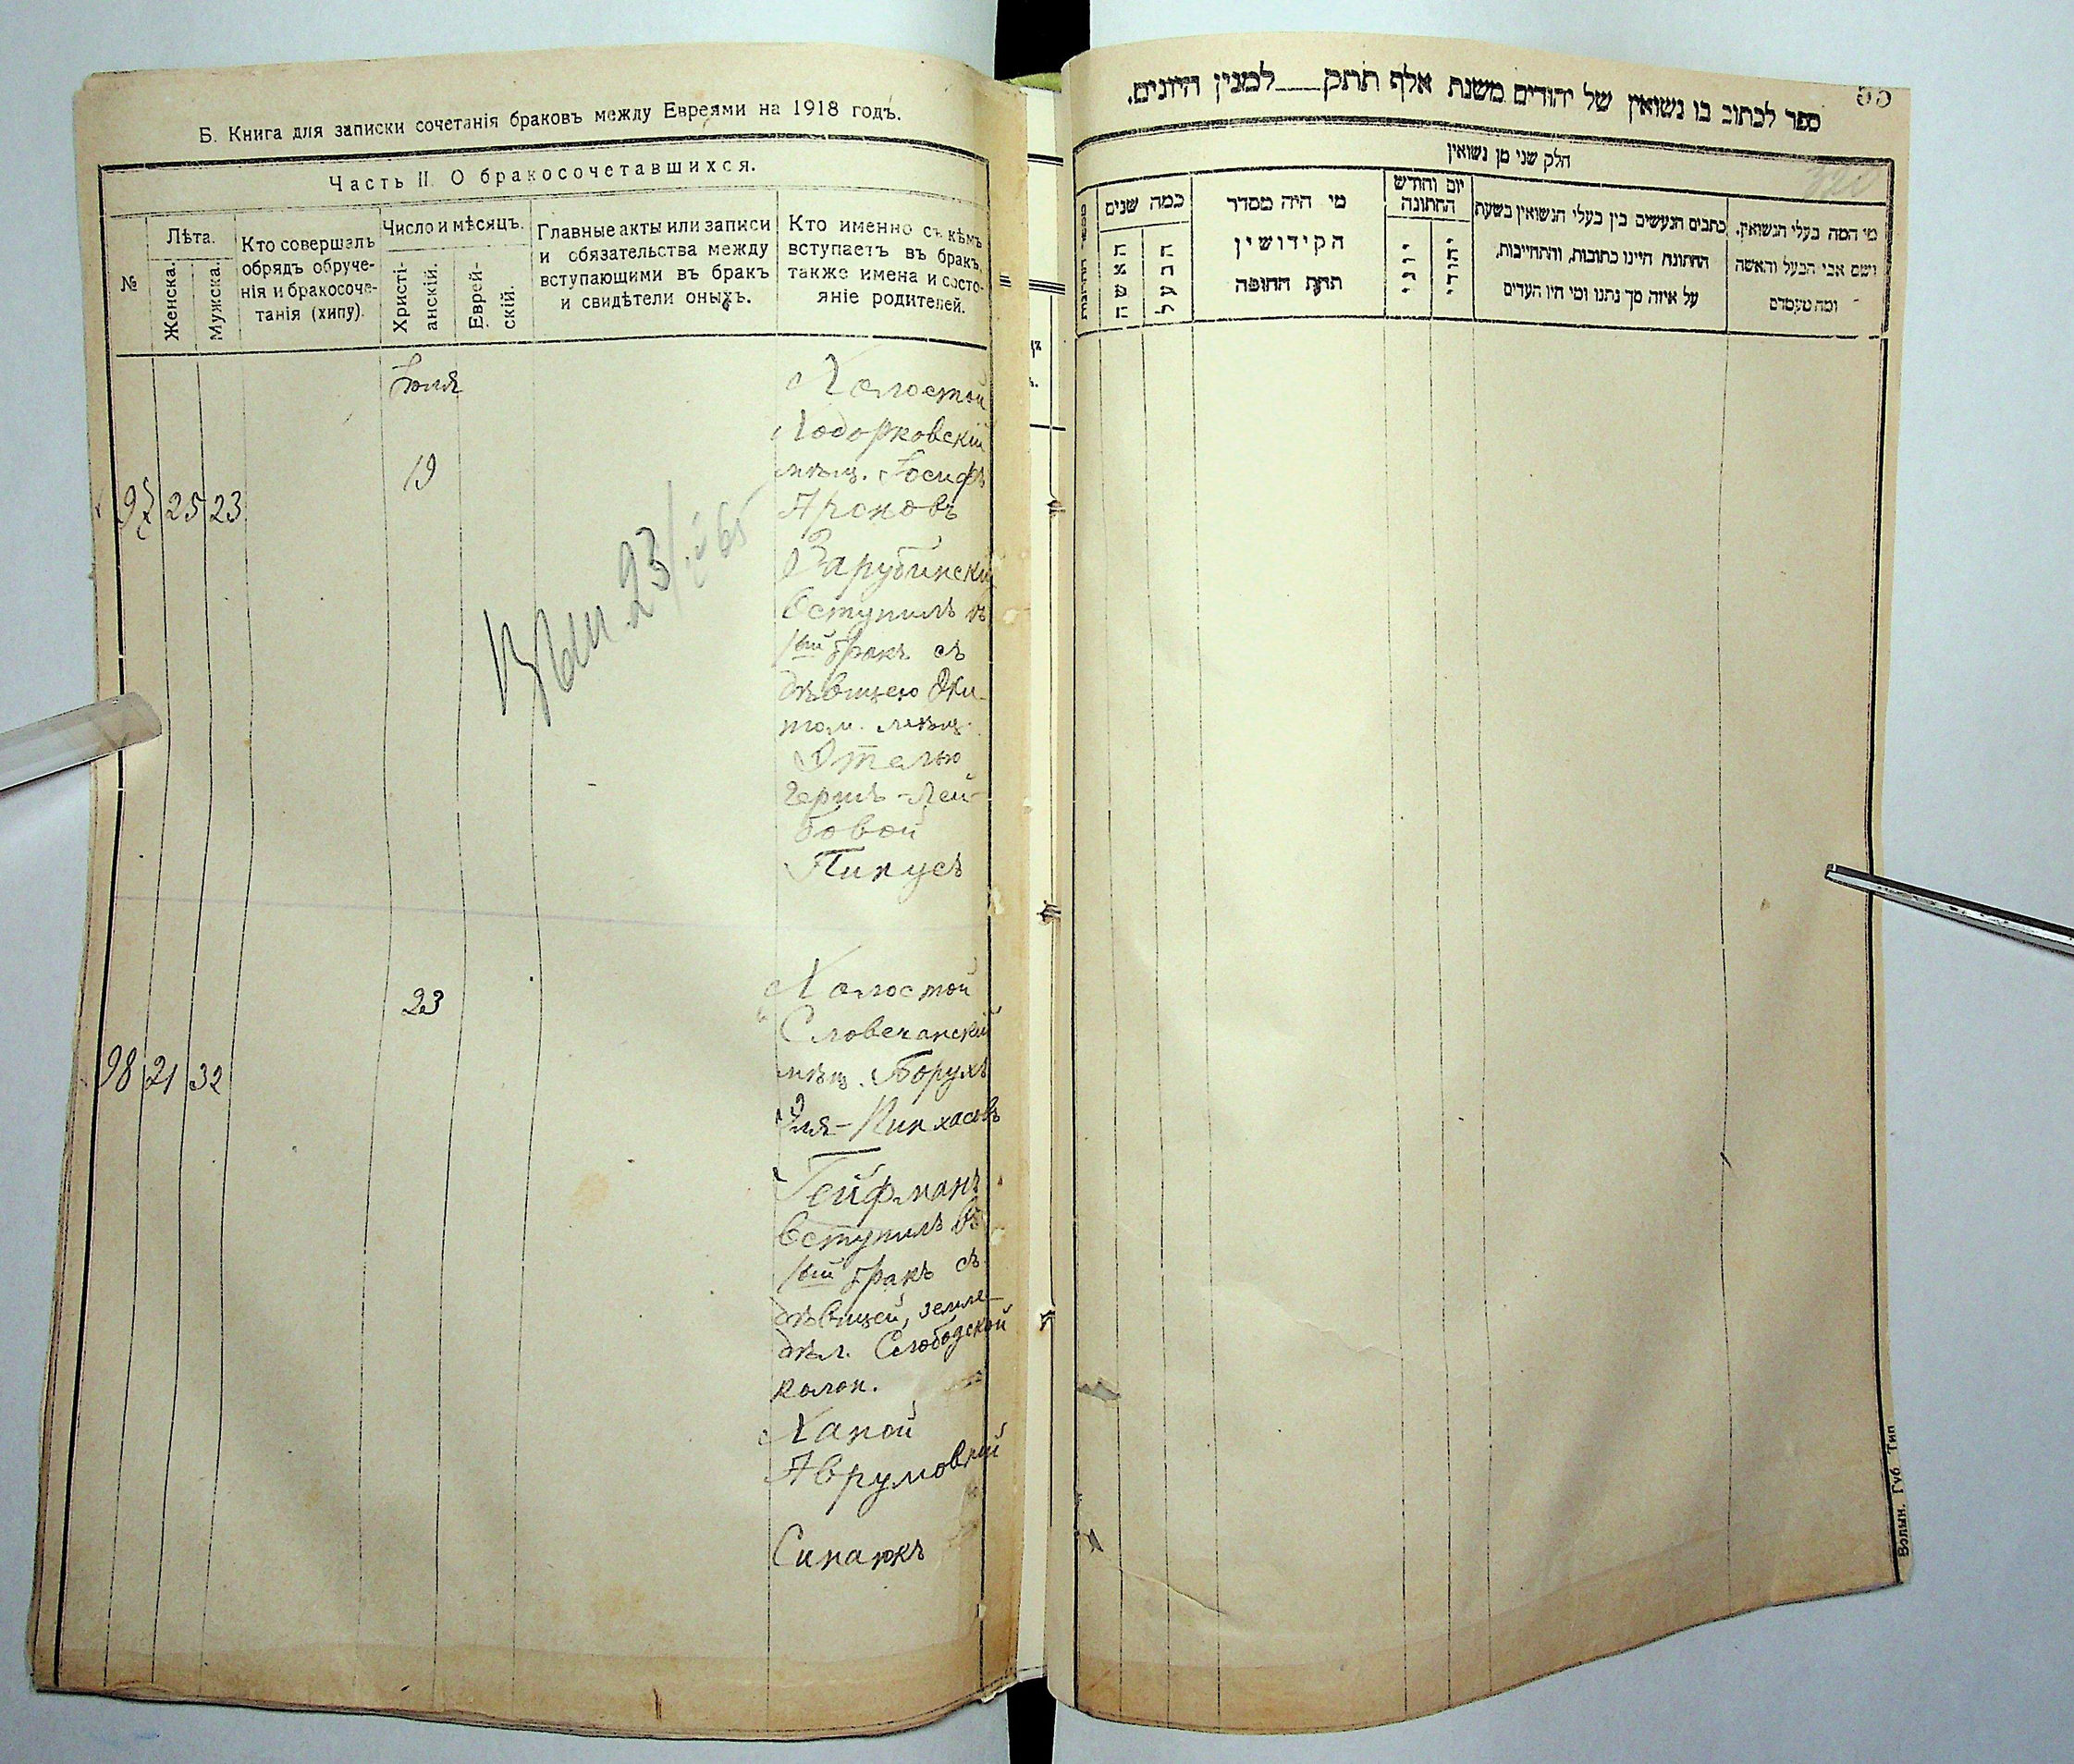 Б. Книга для записки сочетанія браковъ между Евреями на 1918 годъ.
Часть II. О бракосочетавшихся.
№
Лѣта.
Женска.
Мужска.
Кто совершалъ
обрядъ обруче-
нія и бракосоче-
танія (хипу).
Число и мѣсяцъ.
Христі-
анскій.
Еврей-
скій.
Главные акты или записи
и обязательства между
вступающими въ бракъ
и свидѣтели оныхъ.
Кто именно съ кѣмъ
вступаетъ въ бракъ,
также имена и состо-
яніе родителей.
Іюля
19
97 25 23
Холостой
Ходорковскій
мѣщ. Іосифъ
Ароновъ
Зарубинскій
вступилъ въ
1ый бракъ съ
дѣвицею Жи-
том. мѣщ.
Этелью
Герш-Лей-
бовой
Пинусъ
23
98 21 32
Холостой
Словечанскій
мѣщ. Борухъ
Эля-Пинхасовъ
Гейфманъ
вступилъ въ
1ый бракъ съ
дѣвицей, земле-
дѣл. Слободской
колон.
Ханой
Аврумовной
Синаюкъ
55
ספר לכתוב בו נשואין של יהודים משנת אלף תתק למנין היונים.
חלק שני מן נשואין
כמה שנים
האשה
הבעל
מי היה מסדר
הקידושין
תחת החופה
יום וחודש
החתונה
יוני
יהודי
כתבים הנעשים בין בעלי הנשואין בשעת
החתונה היינו כתובות, והתחייבות,
על איזה סך נתנו ומי היו העדים
מי המה בעלי הנשואין,
ושם אבי הבעל והאשה
ומה מעמדם
Волын. Губ. Тип